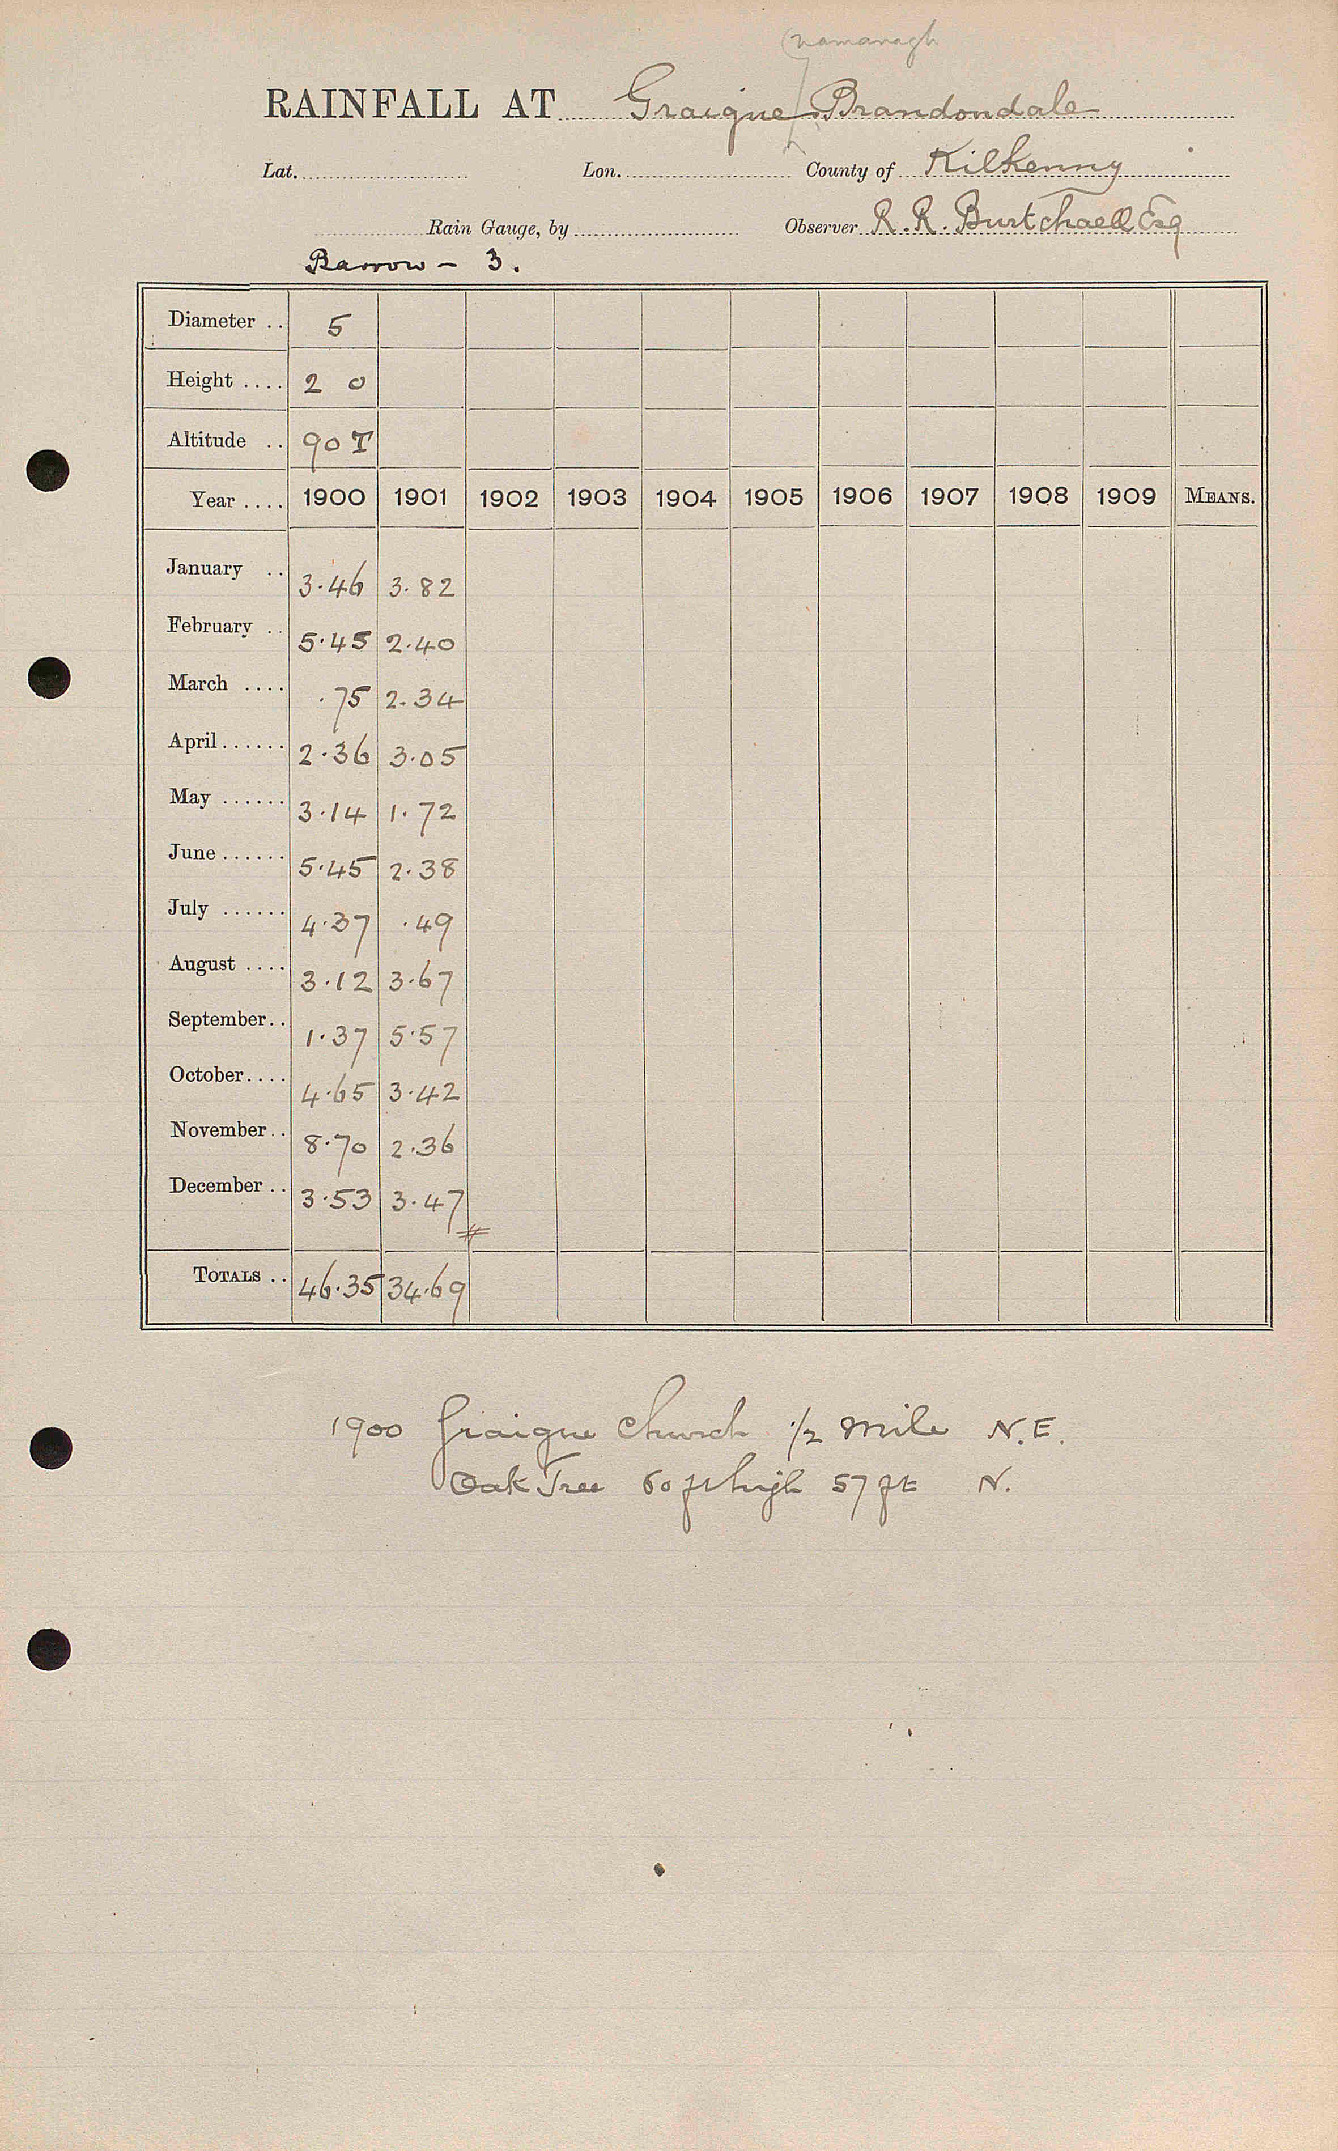 namanagh
RAINFALL AT Graigue Brandondale
Lat. Lon. County of Kilkenny
Rain Gauge, by Observer R. R. Burtchaell Esq
Barrow - 3.
Diameter .. 5
Height .... 2 0
Altitude .. 90 T
Year .... 1900 1901 1902 1903 1904 1905 1906 1907 1908 1909 MEANS.
January .. 3.46 3.82
February .. 5.45 2.40
March .... .75 2.34
April...... 2.36 3.05
May ...... 3.14 1.72
June...... 5.45 2.38
July ...... 4.37 .49
August .... 3.12 3.67
September.. 1.37 5.57
October.... 4.65 3.42
November.. 8.70 2.36
December .. 3.53 3.47
TOTALS .. 46.35 34.69
1900 Graigue Church 1/2 mile N.E.
Oak Tree 60 ft high 57 ft N.